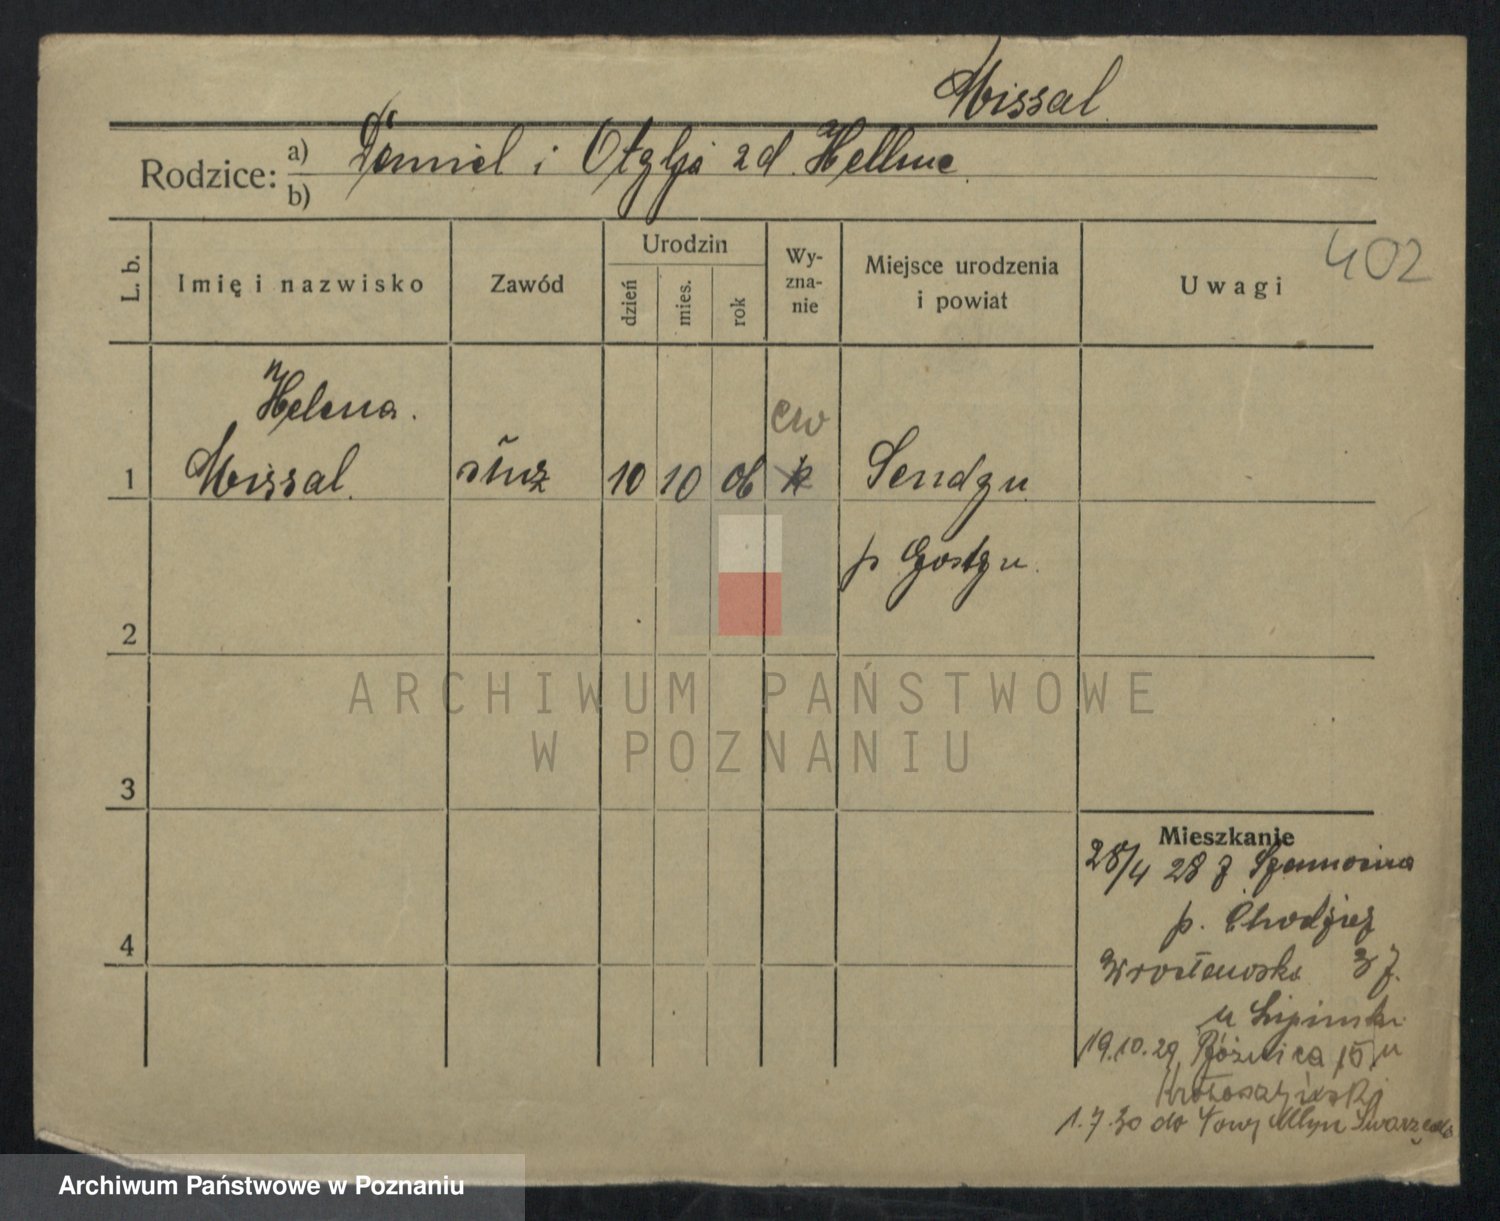 Missal
Rodzice: a) Daniel i Otylja zd. Hellme
b)
L. b.
Imię i nazwisko
Zawód
Urodzin
dzień
mies.
rok
Wy-
zna-
nie
Miejsce urodzenia
i powiat
Uwagi
402
Helena.
ew
1 Missal. służ 10 10 06 k Sendzyn
p Gostyn.
2
3
4
Mieszkanie
28/4 28 z Szamocina
p. Chodzież
Wrocławska
u Lipinski
19.10.29 Bóżnica 15 u
Krotoszyński
1.7.30 do Nowy Młyn Swarzędz
ARCHIWUM PAŃSTWOWE
W POZNANIU
Archiwum Państwowe w Poznaniu